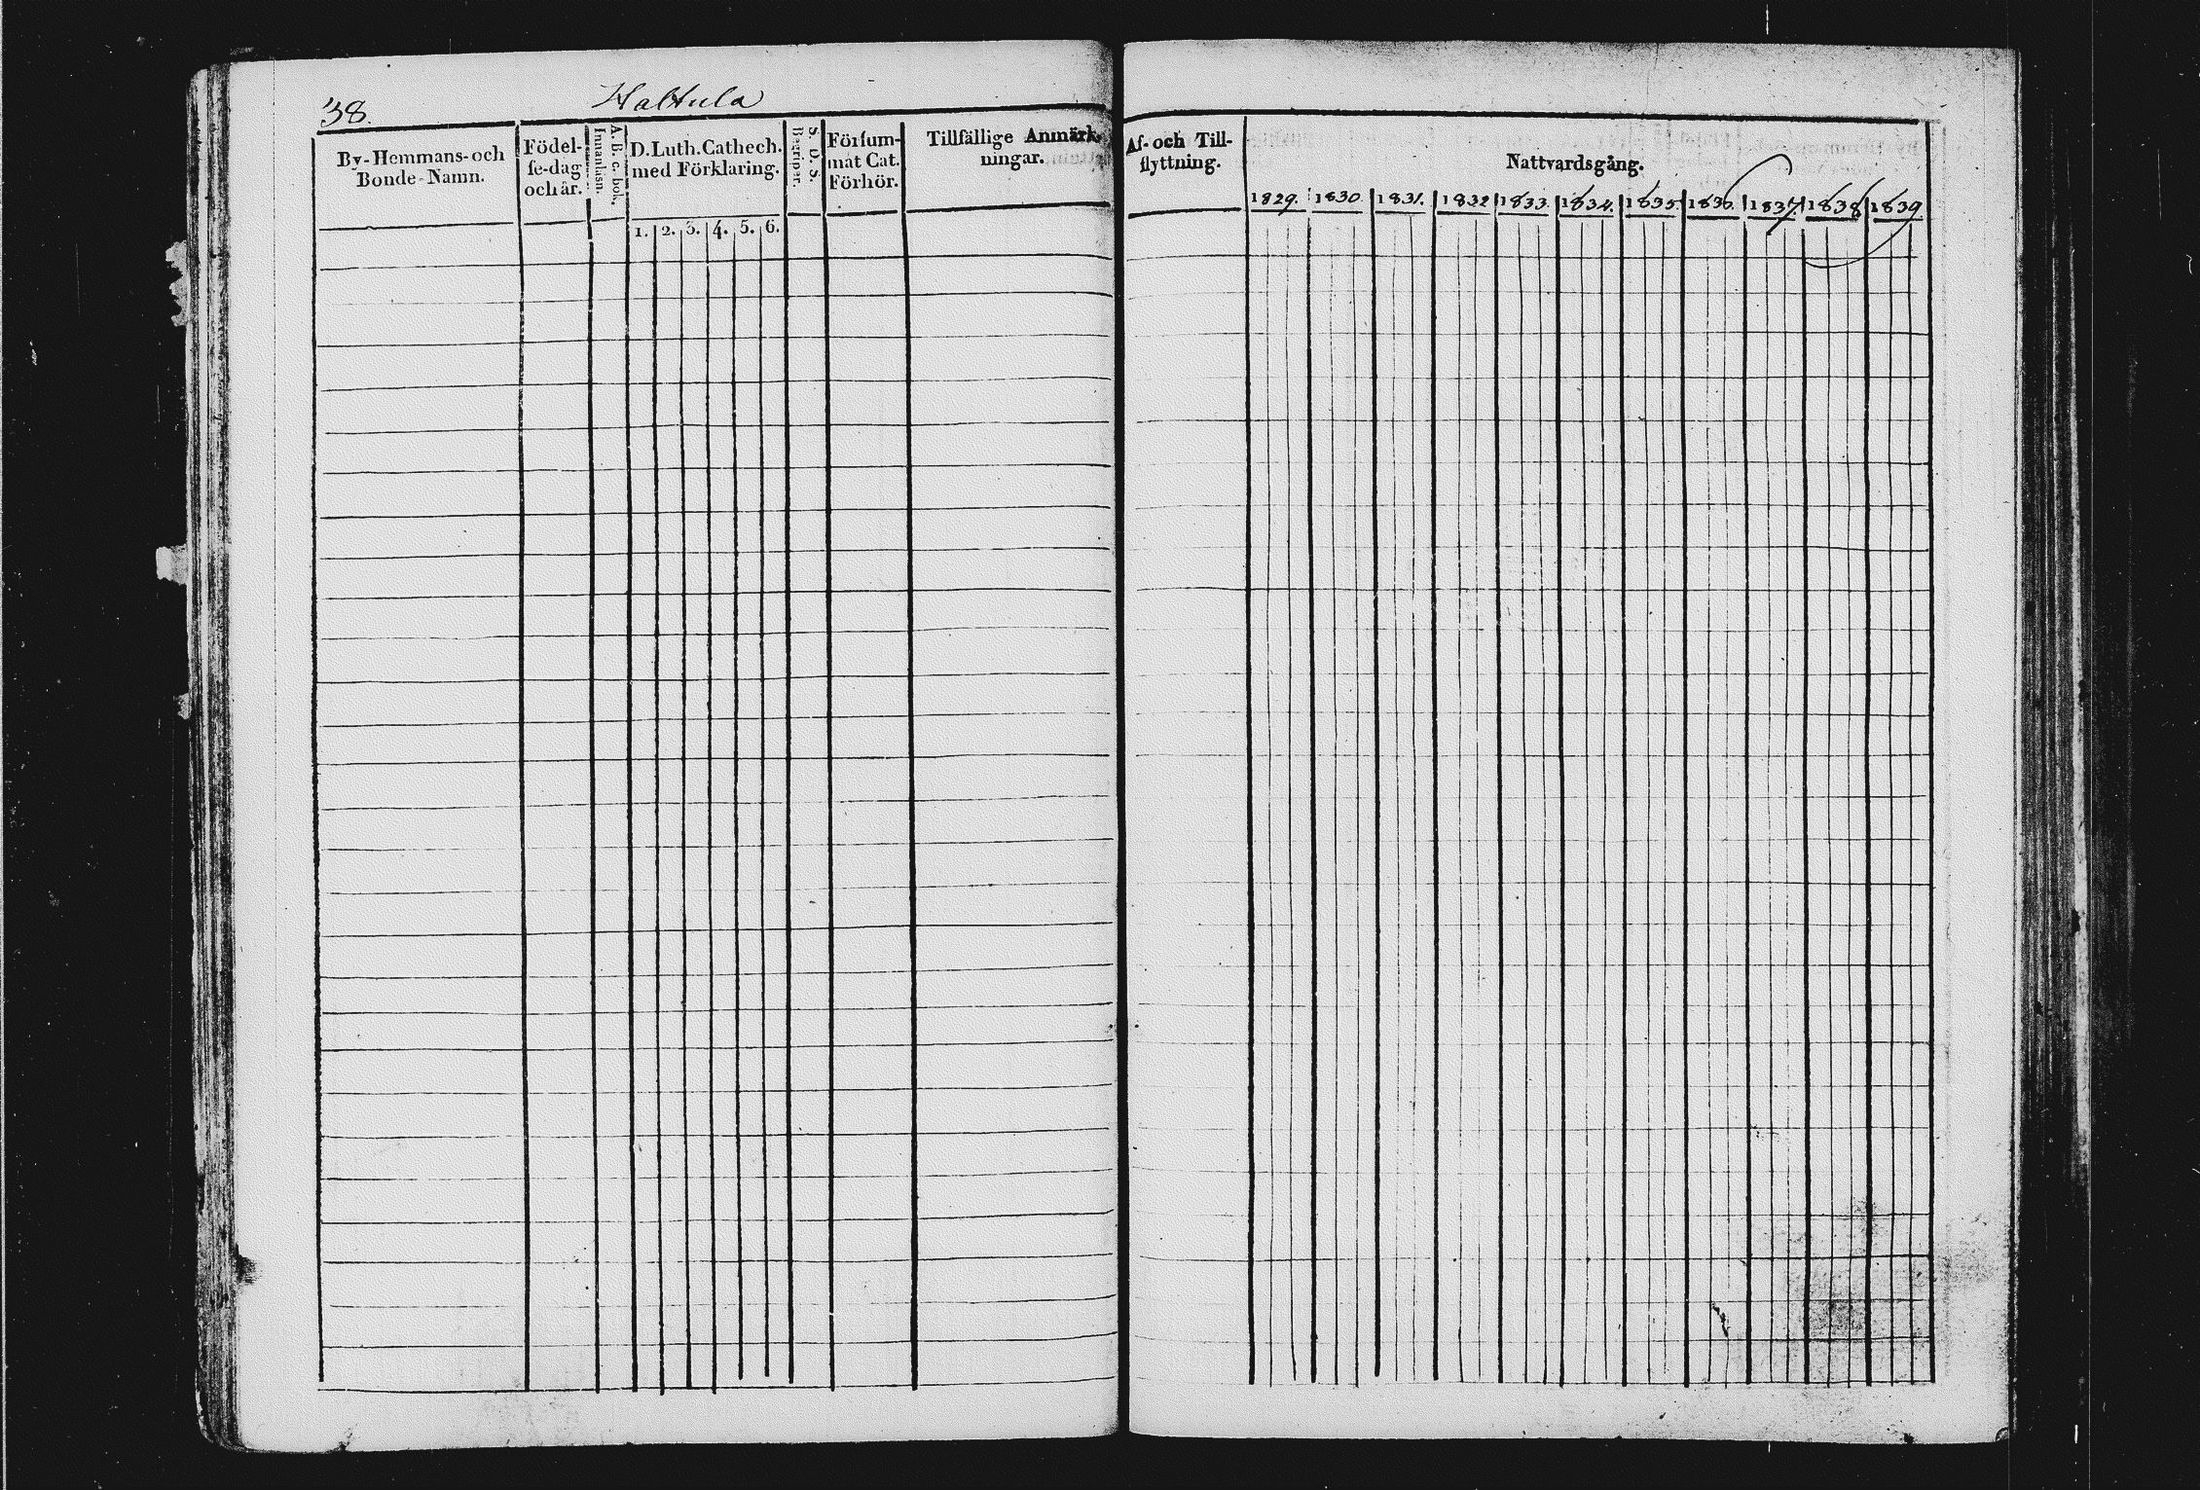 38.
Halttula
By-Hemmans-och
Bonde-Namn.
Födel-
se-dag
och år.
A. B. c. bok.
Innanläsn.
D. Luth. Cathech.
med Förklaring.
1. 2. 3. 4. 5. 6.
S. D. S.
Begriper.
Försum-
mat Cat.
Förhör.
Tillfällige Anmärk-
ningar.
Af- och Till-
flyttning.
Nattvardsgång.
1829. 1830 1831. 1832 1833. 1834. 1835. 1836. 1837. 1838 1839